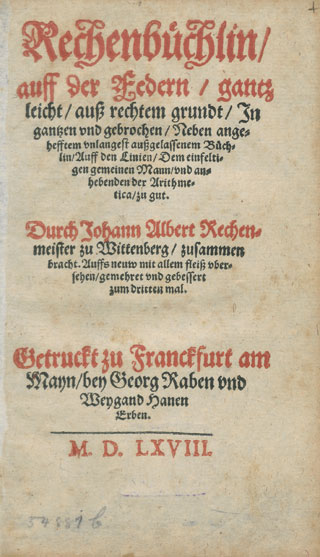 Rechenbüchlin/
auff der Federn / gantz
leicht / auß rechtem grundt / In
gantzen vnd gebrochen / Neben ange-
hefftem vnlangest außgelassenem Büch-
lin / Auff den Linien / Dem einfelti-
gen gemeinen Mann / vnd an-
hebenden der Arithme-
tica / zu gut.
Durch Johann Albert Rechen-
meister zu Wittenberg / zusammen
bracht. Auffs neuw mit allem fleiß vber-
sehen / gemehret vnd gebessert
zum dritten mal.
Getruckt zu Franckfurt am
Mayn / bey Georg Raben vnd
Weygand Hanen
Erben.
M. D. LXVIII.